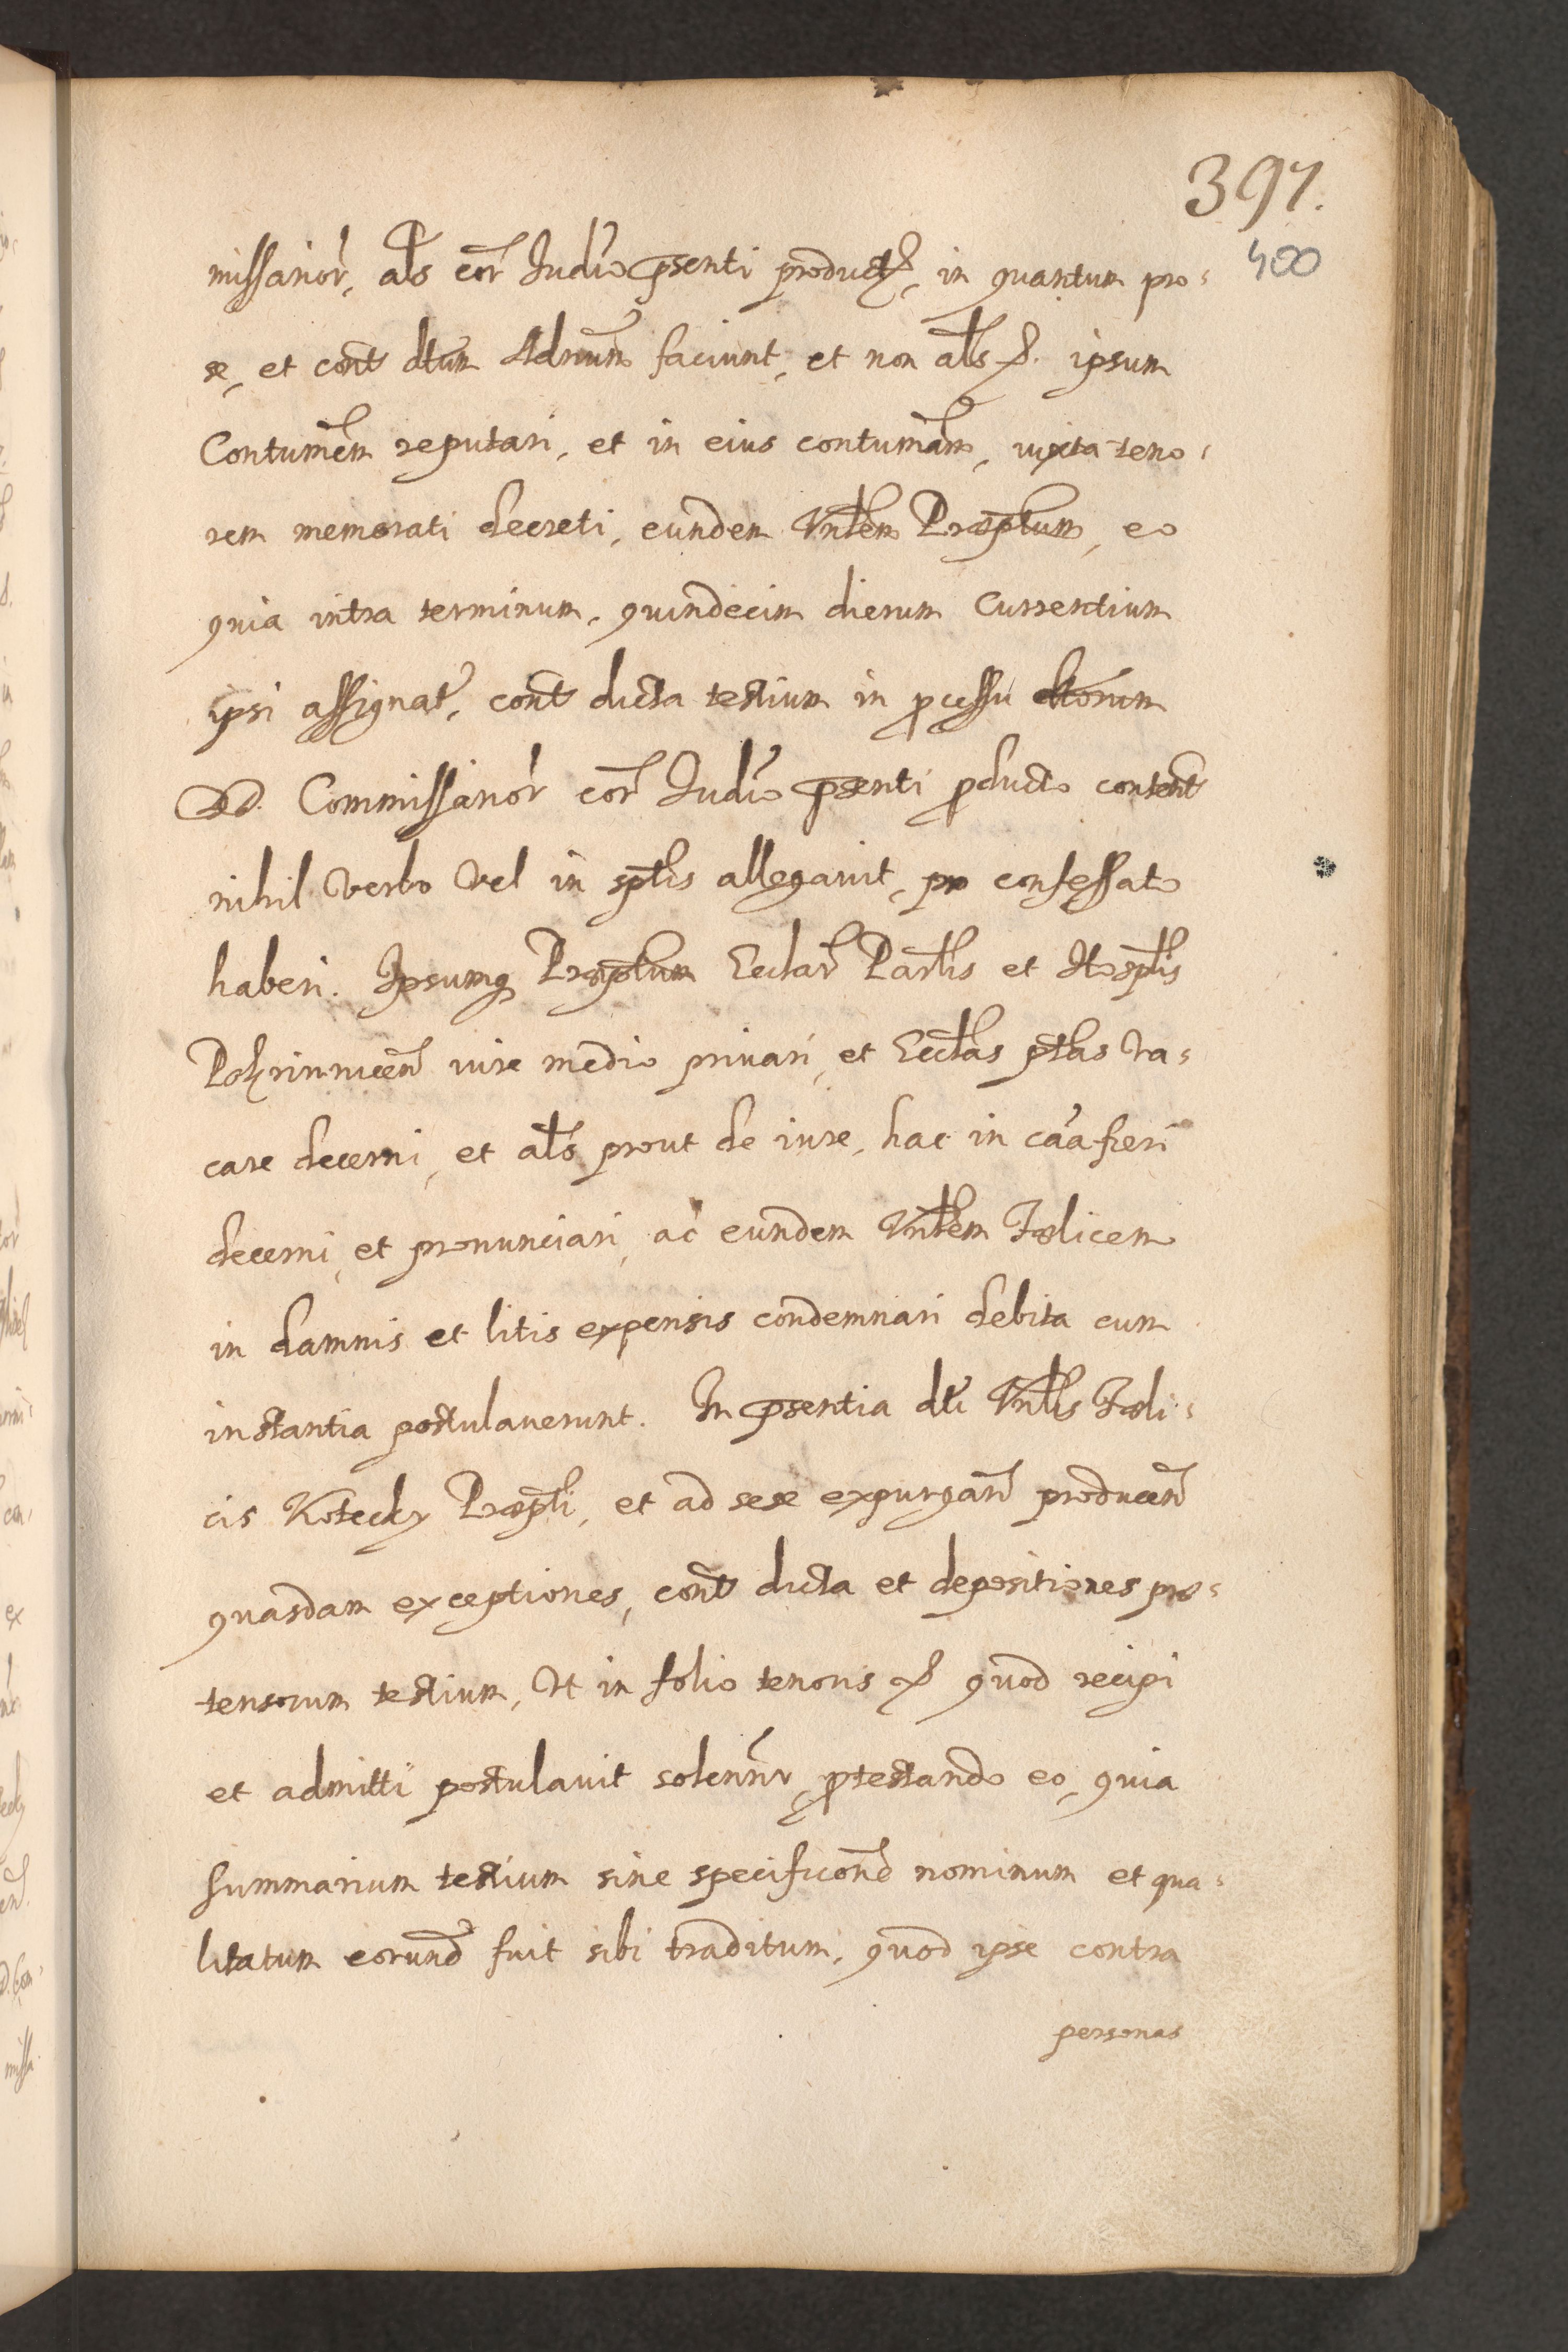 397.
400
missarior, als cor Iudio psenti product, in quantum pro-
se, et cont dtum Adnum faciunt, et non als &. ipsum
Contumem reputari, et in eius contumam, iuxta teno-
rem memorati decreti, eundem Vnblem Præptum, eo
quia intra terminum, quindecim dierum currentium
ipsi assignat, cont dicta testium in pcessu dtorum
DD. Commissarior cor Iudio psenti pducto content
nihil verbo vel in sptis allegavit, pro confessato
haberi. Ipsumq Præptum Ecclar Parlis et Hosptis
iure medio privari, et Ecclas ptas va-
care decerni, et als prout de iure, hac in caa fieri
decerni, et pronunciari, ac eundem Vnblem Fælicem
in damnis et litis expensis condemnari debita cum
instantia postulaverunt. In psentia dti Vnblis Fæli-
cis Kotecky Præpti, et ad sese expurgan producen
quasdam exceptiones, cont dicta et depositiones præ-
tensorum testium, vt in folio tenoris & quod recipi
et admitti postulavit solennr, ptestando eo, quia
summarium testium sine specificone nominum et qua-
litatum eorund fuit sibi traditum, quod ipse contra
personas